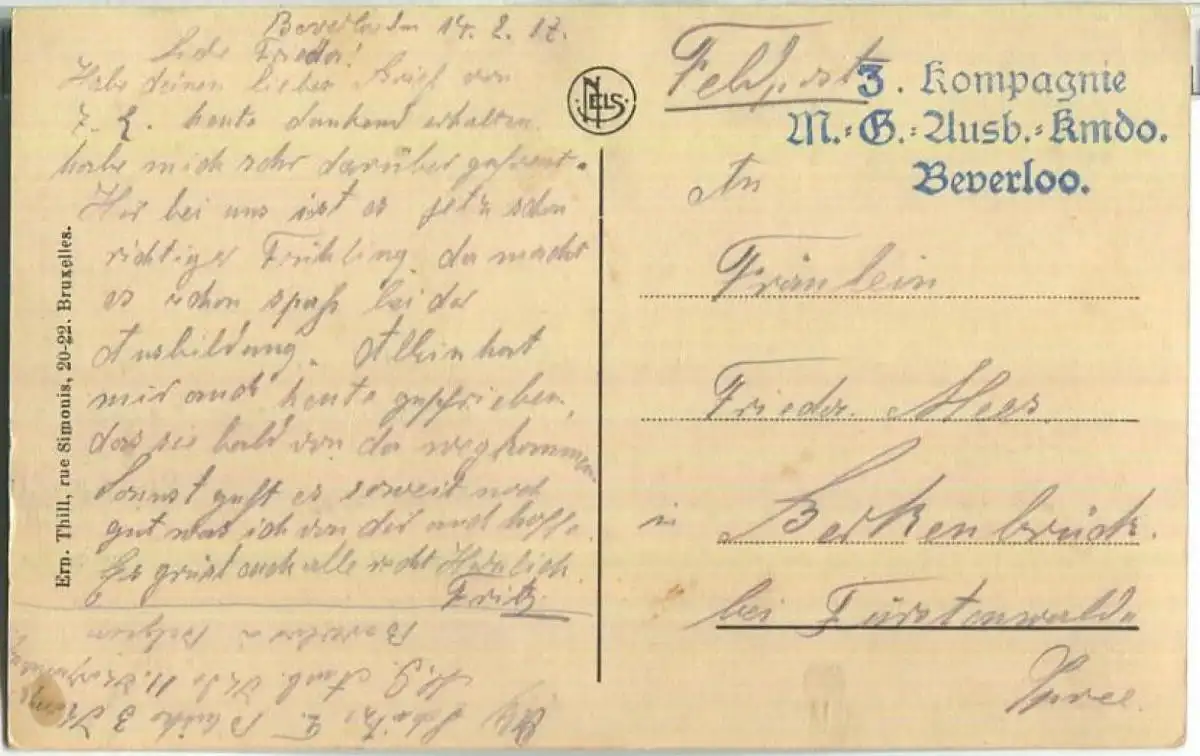 Beverloo den 14. 2. 17.
Liebe Frieda!
Habe deinen lieben Brief von
7. 2. heute dankend erhalten.
habe mich sehr darüber gefreut.
Hir bei uns ist es jetz schon
richtiger Frühling da macht
es schon spaß bei der
Ausbildung.
mir auch heute geschrieben,
das sie bald von da wegkommen
Sonnst geht es soweit noch
gut was ich von dir auch hoffe.
Es grüst euch alle recht Herzlich
Fritz.
Beverloo Belgien
M. G. Ausb.
3
Ern. Thill, rue Simonis, 20-22. Bruxelles.
NELS
Feldpost
3. Kompagnie
M.=G.=Ausb.=Kmdo.
Beverloo.
An
Fräulein
Frieda Mees
in Berkenbrück.
bei Fürstenwalde
Spree.